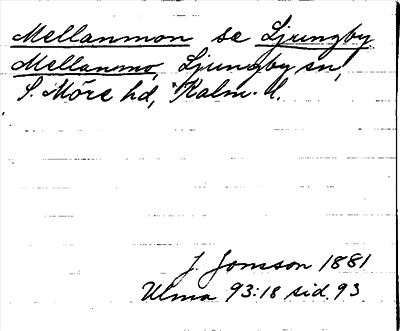 Mellanmon se Ljungby
Mellanmo, Ljungby sn,
S. Möre hd, Kalm. l.
J. Jonsson 1881
Ulma 93:18 sid. 93